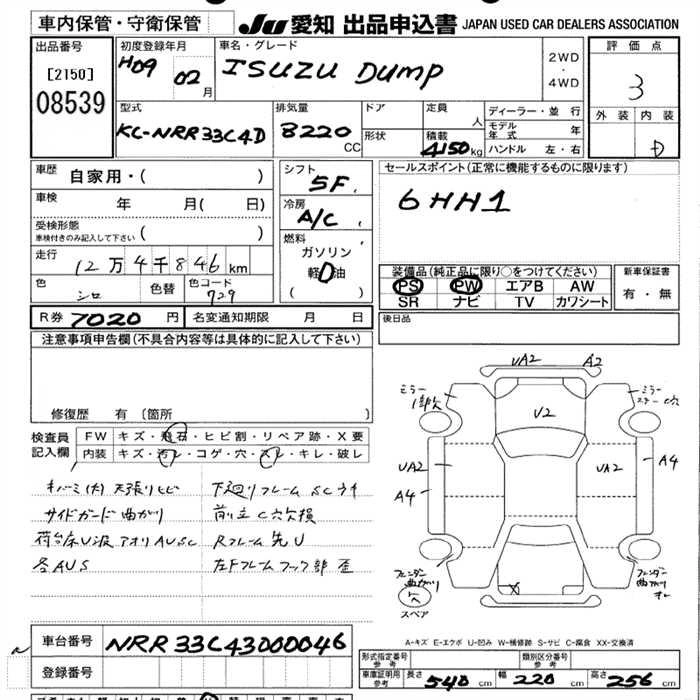 車内保管・守衛保管
JU 愛知 出品申込書 JAPAN USED CAR DEALERS ASSOCIATION
出品番号
[2150]
08539
初度登録年月
H09 02月
車名・グレード
ISUZU DUMP
2WD
・
4WD
評価点
3
外装 内装
D
型式
KC-NRR33C4D
排気量
8220 CC
ドア
形状
定員 人
積載 4150kg
ディーラー・並行
モデル年式 年
ハンドル 左・右
車歴 自家用・( )
車検 年 月( 日)
受検形態
車検付きのみ記入して下さい ( )
走行 12万4千846km
色 シロ 色替 色コード 729
シフト
5F
冷房
A/C
燃料
ガソリン
軽油
( )
セールスポイント(正常に機能するものに限ります)
6HH1
装備品(純正品に限り○をつけてください)
PS PW エアB AW
SR ナビ TV カワシート
新車保証書
有・無
R券 7020 円 名変通知期限 月 日
後日品
注意事項申告欄(不具合内容等は具体的に記入して下さい)
修復歴 有 (箇所 )
検査員
記入欄
FW キズ・飛石・ヒビ割・リペア跡・X要
内装 キズ・汚レ・コゲ・穴・スレ・キレ・破レ
キバミ(大) 天張りヒビ
下廻りフレーム SCウキ
サイドガード曲がり
前立C穴欠損
荷台床U波 アオリAUSC
Rフレーム先U
各AUS
左Fフレームフック部歪
UA2 A2
ミラー
ミラー
V2
UA2
UA2
A4
A4
フェンダー
曲がり
フェンダー
曲がり
X
スペア
A-キズ E-エクボ U-凹み W-補修跡 S-サビ C-腐食 XX-交換済
車台番号 NRR33C43000046
登録番号
形式指定番号
参考
類別区分番号
参考
車庫証明用
参考
長さ 540 cm 幅 220 cm 高さ 256 cm